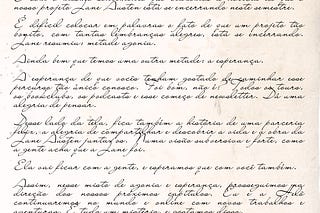 nosso projeto Jane Austen está se encerrando neste semestre.
É difícil colocar em palavras o fato de que um projeto tão
bonito, com tantas lembranças alegres, está se encerrando.
Jane resumiu: metade agonia.
Ainda bem que temos uma outra metade: a esperança.
A esperança de que vocês tenham gostado de caminhar esse
percurso tão único conosco. Foi bom, não é? Todos os tours,
os bookclubs, os podcasts e esse começo de newsletter. Dá uma
alegria de pensar.
Desse lado da tela, fica também a história de uma parceria
feliz, a alegria de compartilhar e descobrir a vida e a obra da
Jane Austen juntas. Uma visão subversiva e forte, como
a gente acha que a Jane foi.
Ela vai ficar com a gente, e esperamos que com você também.
Assim, nesse misto de agonia e esperança, prosseguimos na
direção dos nossos próximos capítulos. Eu e a
continuaremos no mundo e online com novos trabalhos e
aventuras. É tudo um mistério, e gostamos disso.